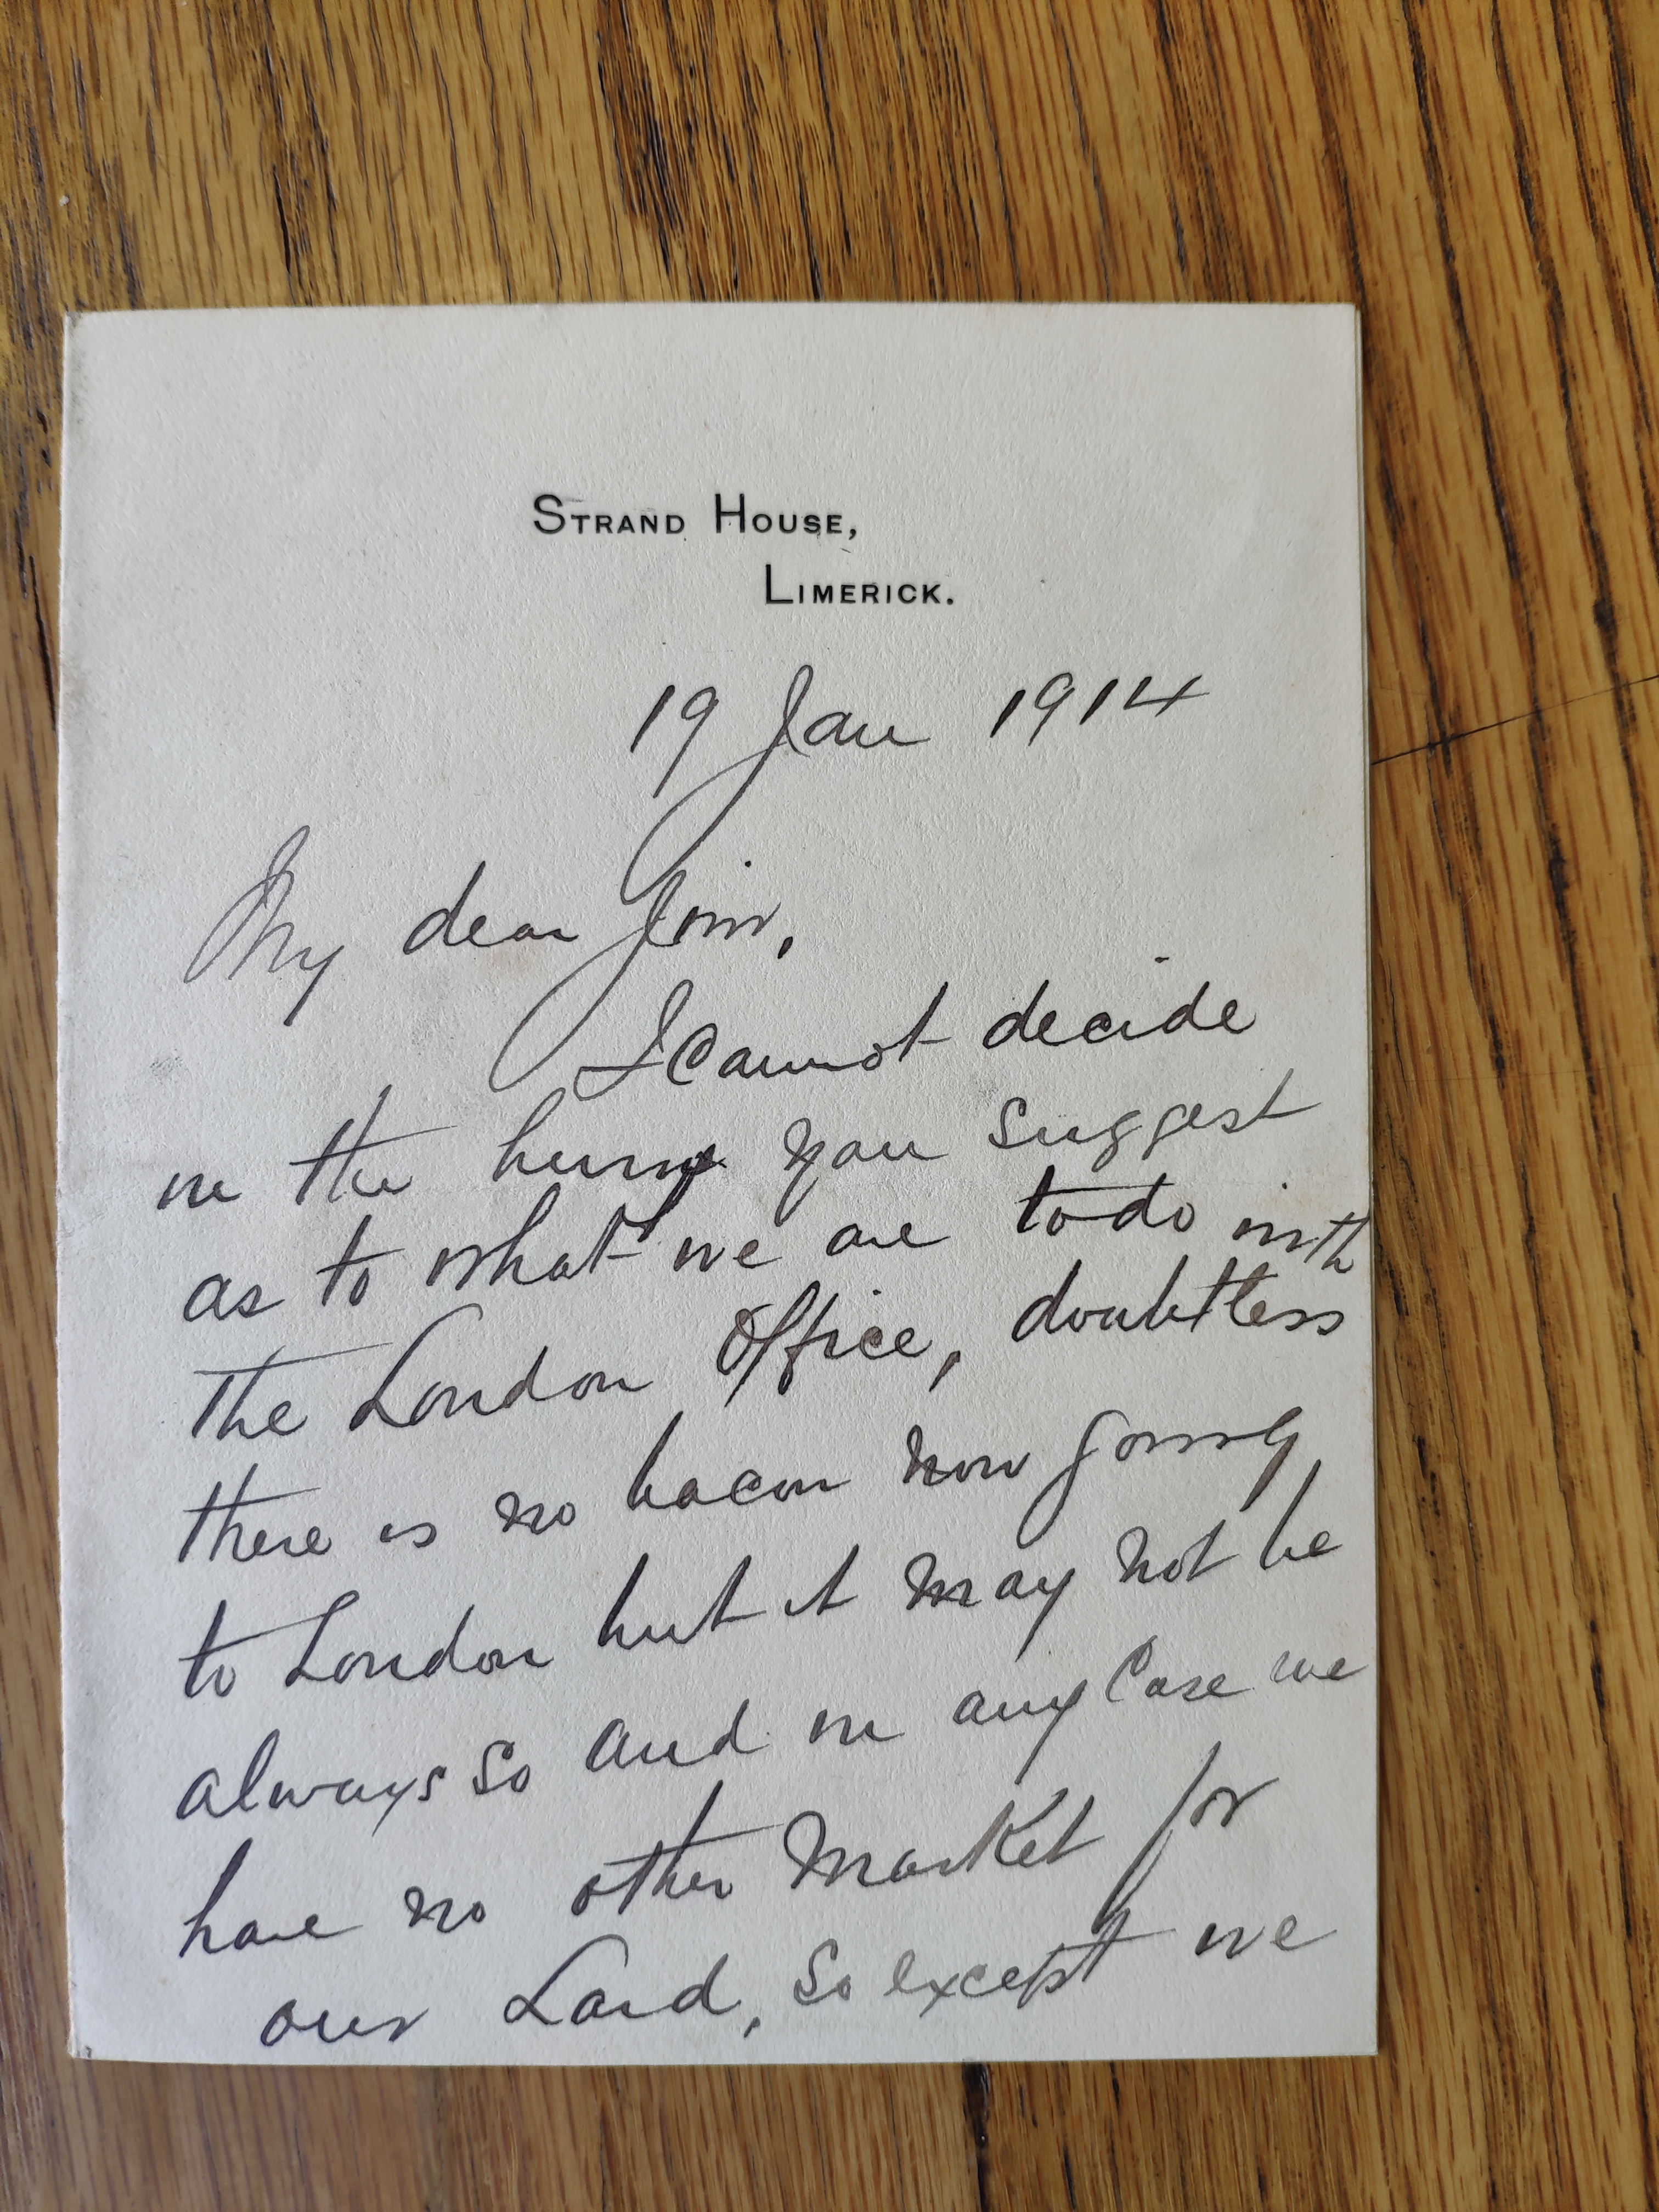 STRAND HOUSE,
LIMERICK.
19 Jan 1914
My dear Jim,
I Cannot decide
in the hurry you suggest
as to what we are to do with
the London Office, doubtless
there is no bacon now going
to London but it may not be
always so and in any Case we
have no other Market for
our Lard, so except we